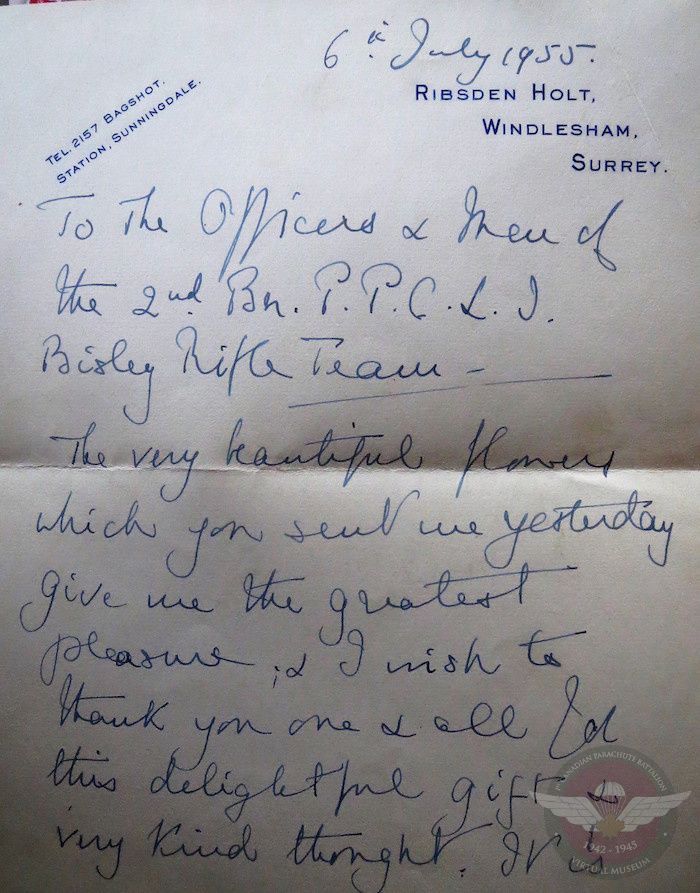 6th July 1955.
RIBSDEN HOLT,
WINDLESHAM,
SURREY.
TEL. 2157 BAGSHOT.
STATION, SUNNINGDALE.
To The Officers & Men of
the 2nd. Bn. P.P.C.L.I.
Bisley Rifle Team -
The very beautiful flowers
which you sent me yesterday
give me the greatest
pleasure, & I wish to
thank you one & all for
this delightful gift &
very kind thought. It is
1st CANADIAN PARACHUTE BATTALION
1942 - 1945
VIRTUAL MUSEUM